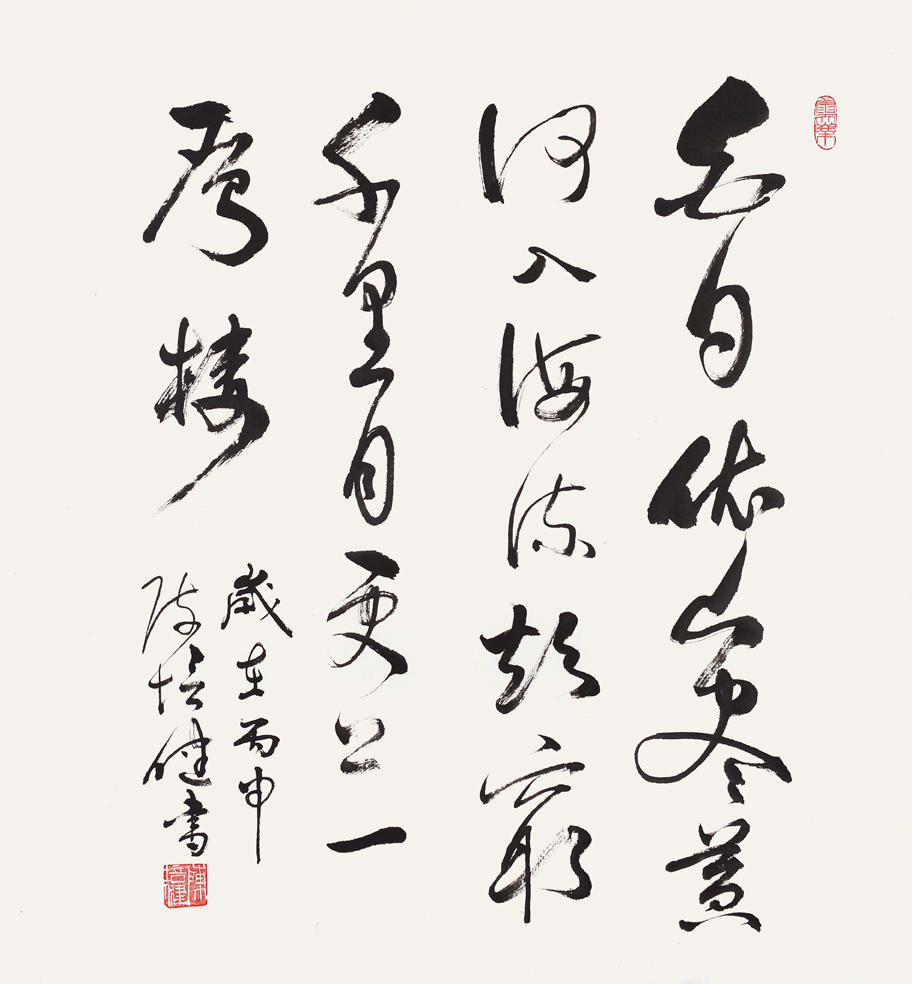 白日依山盡黄
河入海流欲窮
千里目更上一
層樓
歲在丙申
陳培健書